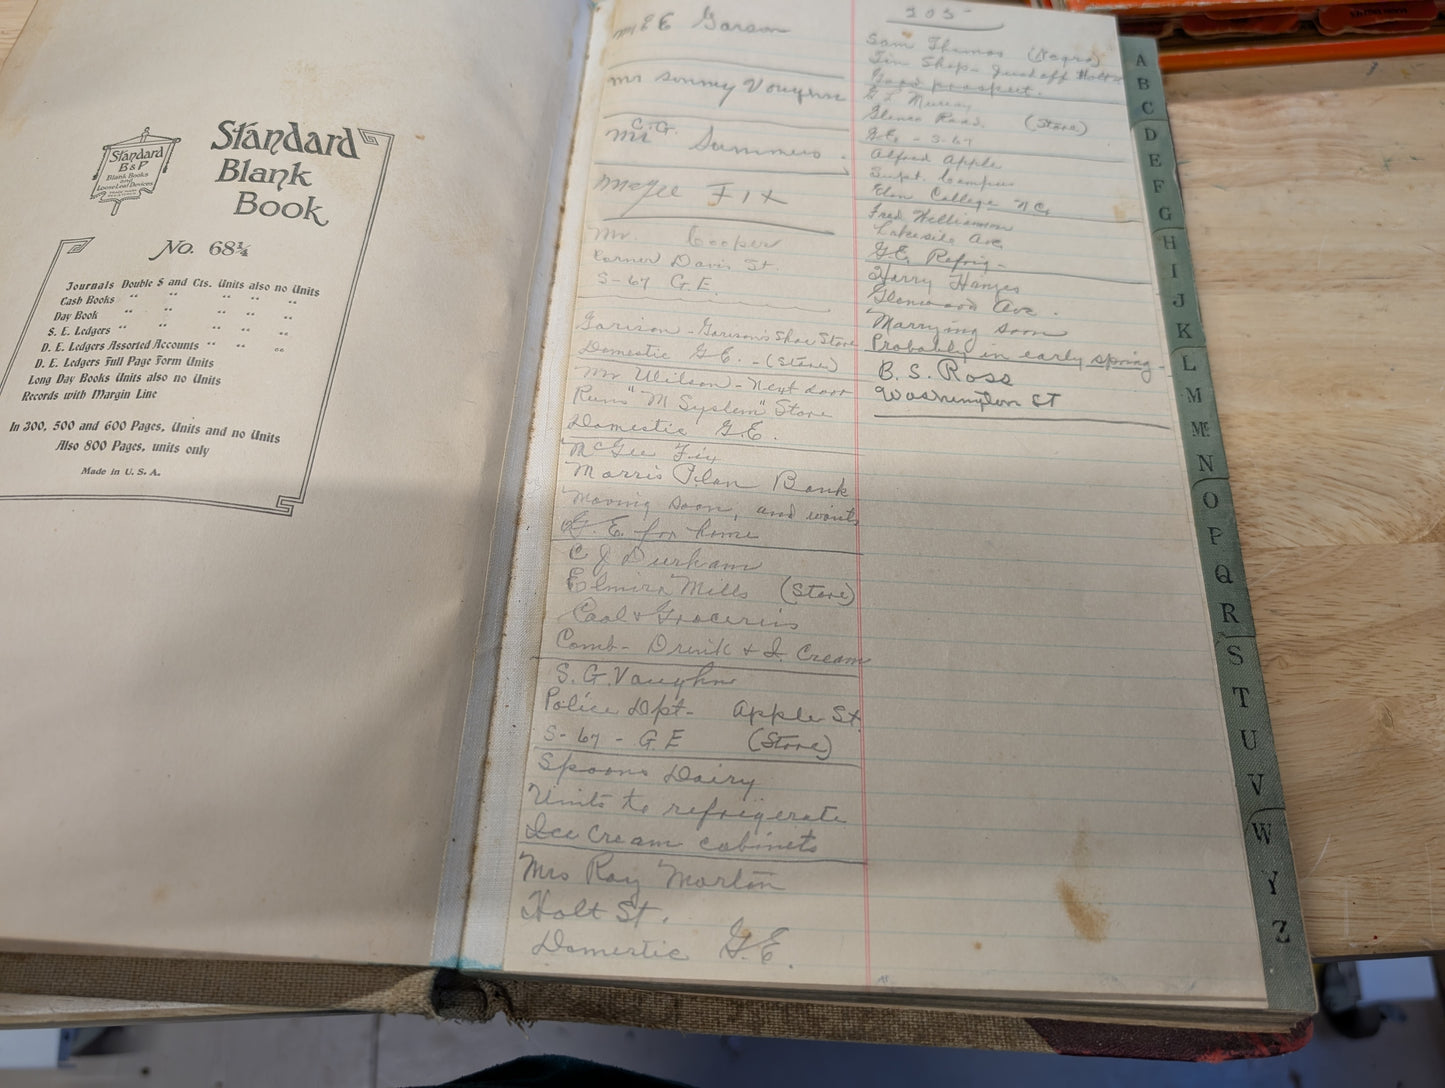 Standard
B & P
Blank Books
and
Loose Leaf Devices
Standard
Blank
Book
No. 68¼
Journals Double $ and Cts. Units also no Units
Cash Books " " " " "
Day Book " " " " "
S. E. Ledgers " " " " "
D. E. Ledgers Assorted Accounts " " "
D. E. Ledgers Full Page Form Units
Long Day Books Units also no Units
Records with Margin Line
In 300, 500 and 600 Pages, Units and no Units
Also 800 Pages, units only
Made in U. S. A.
Mr Sonny Vaughn
C. G.
Mr Summers.
McGee Fix
Mr. Cooper
Corner Davis St.
S-67 G.E.
Garison - Garison's Shoe Store
Domestic G.E. - (Store)
Mr Wilson - Next door
Runs "M System" Store
Domestic G.E.
McGee Fix
Morris Plan Bank
Moving soon, and wants
G.E. for home
C J Durham
Elmira Mills (Store)
Coal & Groceries
Comb- Drink & I. Cream
S. G. Vaughn
Police Dpt- Apple St
S-67 - G E (Store)
Spoons Dairy
Units to refrigerate
Ice Cream cabinets
Mrs Ray Morton
Holt St.
Domestic G.E.
205
Sam Thomas (Negro)
Tin Shop- Holt
Good prospect.
G L Murray
Glenco Road (Store)
G.E. - S-67
Alfred Apple
Supt. Campus
Elon College N.C.
Fred Williamson
Lakeside Ave
G.E. Refrig-
Harry Hanzes
Glenwood Ave.
Marrying soon
Probably in early spring-
B. S. Ross
Washington ST
A
B
C
D
E
F
G
H
I
J
K
L
M
Mc
N
O
P
Q
R
S
T
U
V
W
Y
Z